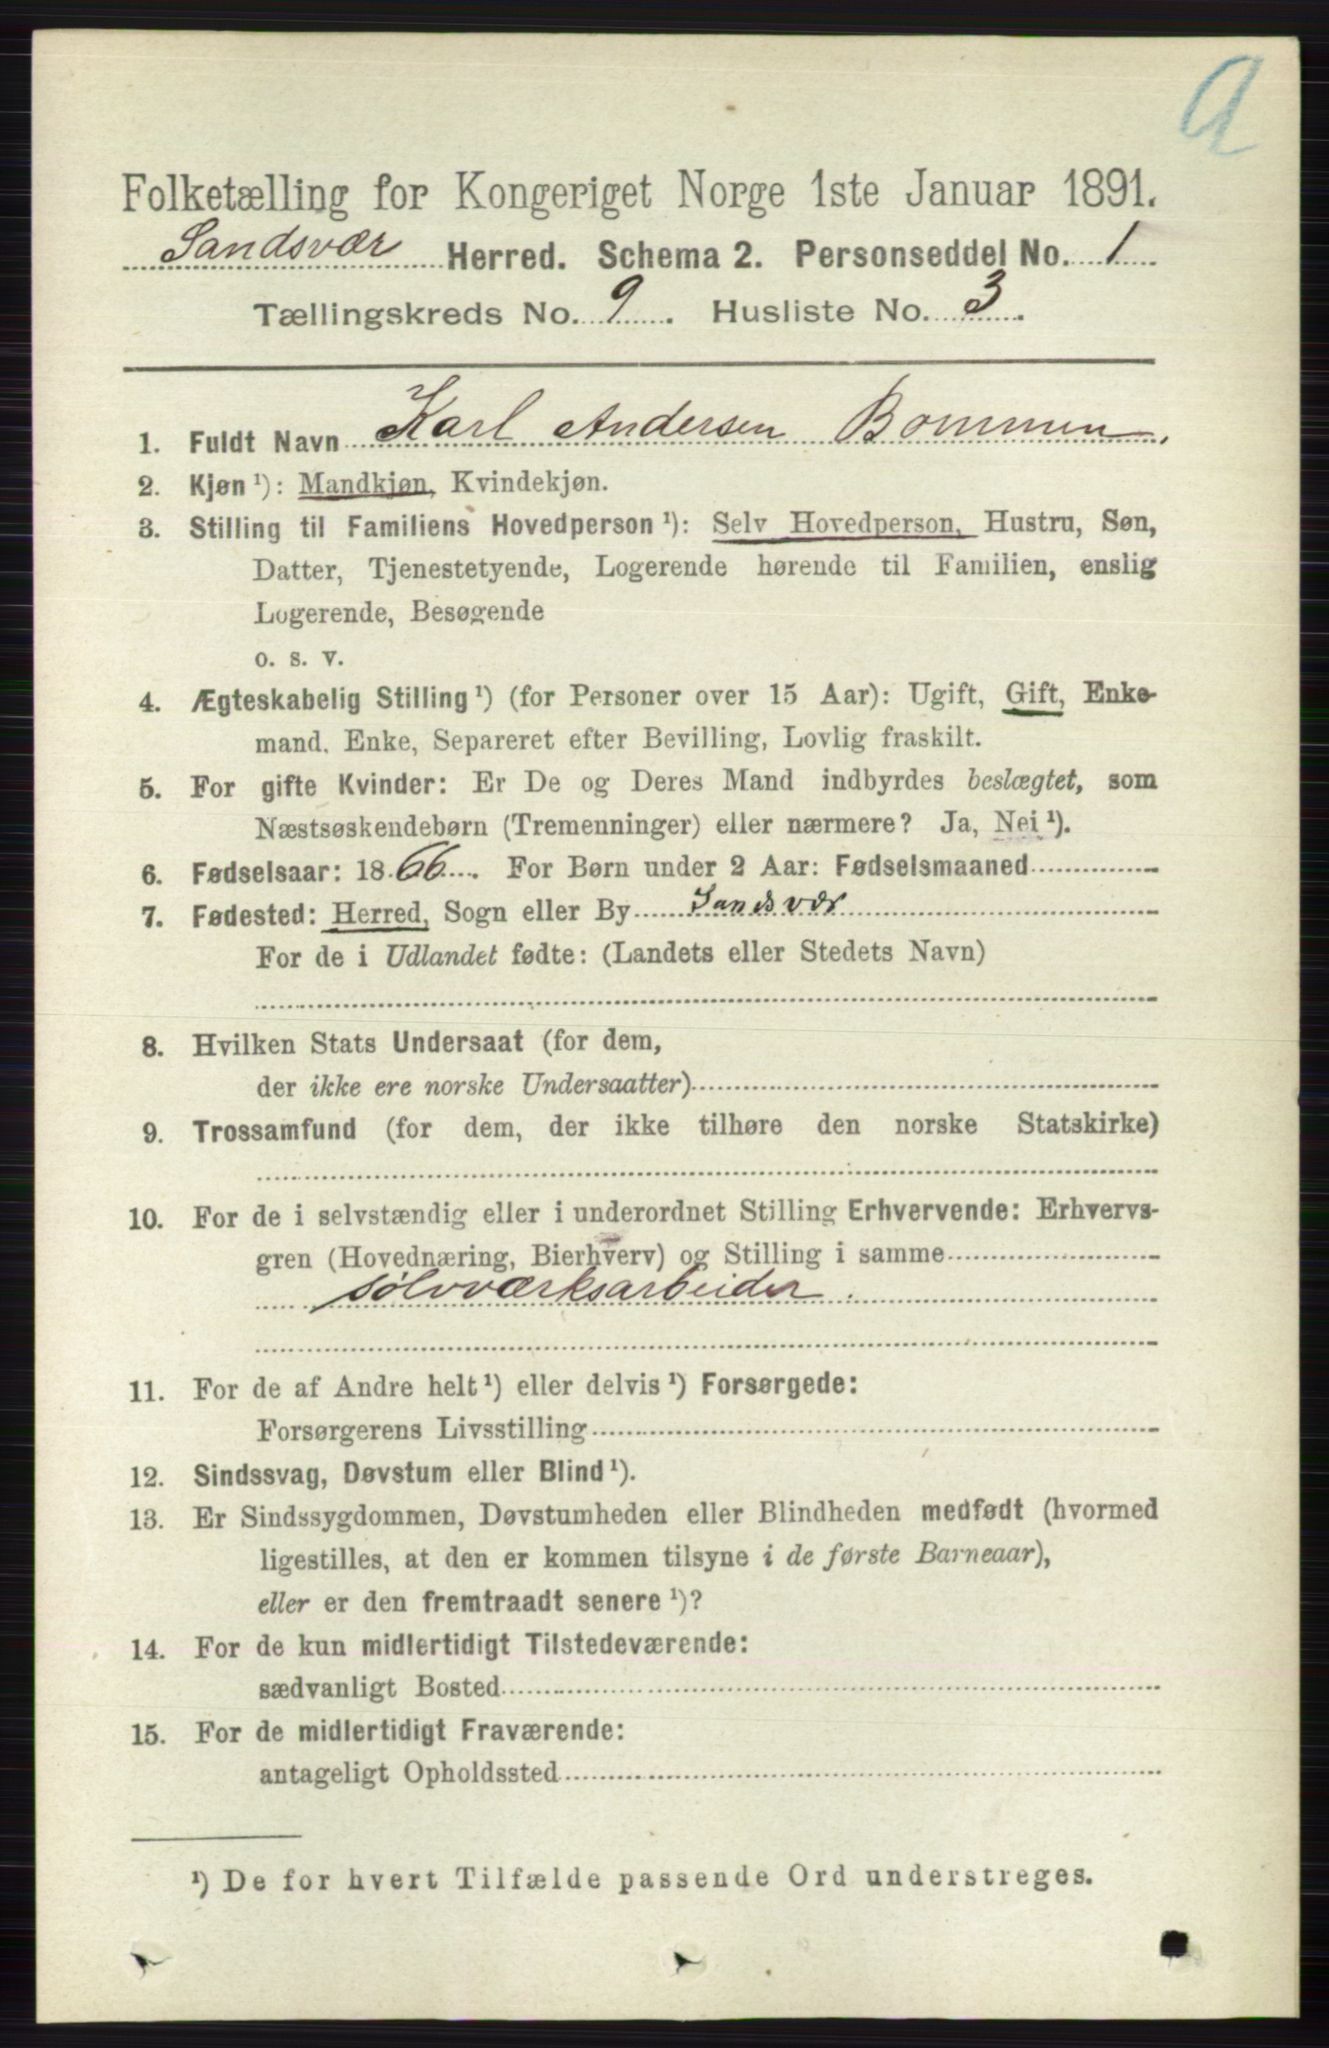 a
Folketælling for Kongeriget Norge 1ste Januar 1891.
Sandsvær Herred. Schema 2. Personseddel No. 1
Tællingskreds No. 9. Husliste No. 3.
1. Fuldt Navn Karl Andersen Bommen.
2. Kjøn ¹): Mandkjøn, Kvindekjøn.
3. Stilling til Familiens Hovedperson ¹): Selv Hovedperson, Hustru, Søn,
Datter, Tjenestetyende, Logerende hørende til Familien, enslig
Logerende, Besøgende
o. s. v.
4. Ægteskabelig Stilling ¹) (for Personer over 15 Aar): Ugift, Gift, Enke-
mand, Enke, Separeret efter Bevilling, Lovlig fraskilt.
5. For gifte Kvinder: Er De og Deres Mand indbyrdes beslægtet, som
Næstsøskendebørn (Tremenninger) eller nærmere? Ja, Nei ¹).
6. Fødselsaar: 1866. For Børn under 2 Aar: Fødselsmaaned
7. Fødested: Herred, Sogn eller By Sandsvær
For de i Udlandet fødte: (Landets eller Stedets Navn)
8. Hvilken Stats Undersaat (for dem,
der ikke ere norske Undersaatter)
9. Trossamfund (for dem, der ikke tilhøre den norske Statskirke)
10. For de i selvstændig eller i underordnet Stilling Erhvervende: Erhvervs-
gren (Hovednæring, Bierhverv) og Stilling i samme
sølvværksarbeider.
11. For de af Andre helt ¹) eller delvis ¹) Forsørgede:
Forsørgerens Livsstilling
12. Sindssvag, Døvstum eller Blind ¹).
13. Er Sindssygdommen, Døvstumheden eller Blindheden medfødt (hvormed
ligestilles, at den er kommen tilsyne i de første Barneaar),
eller er den fremtraadt senere ¹)?
14. For de kun midlertidigt Tilstedeværende:
sædvanligt Bosted
15. For de midlertidigt Fraværende:
antageligt Opholdssted
¹) De for hvert Tilfælde passende Ord understreges.